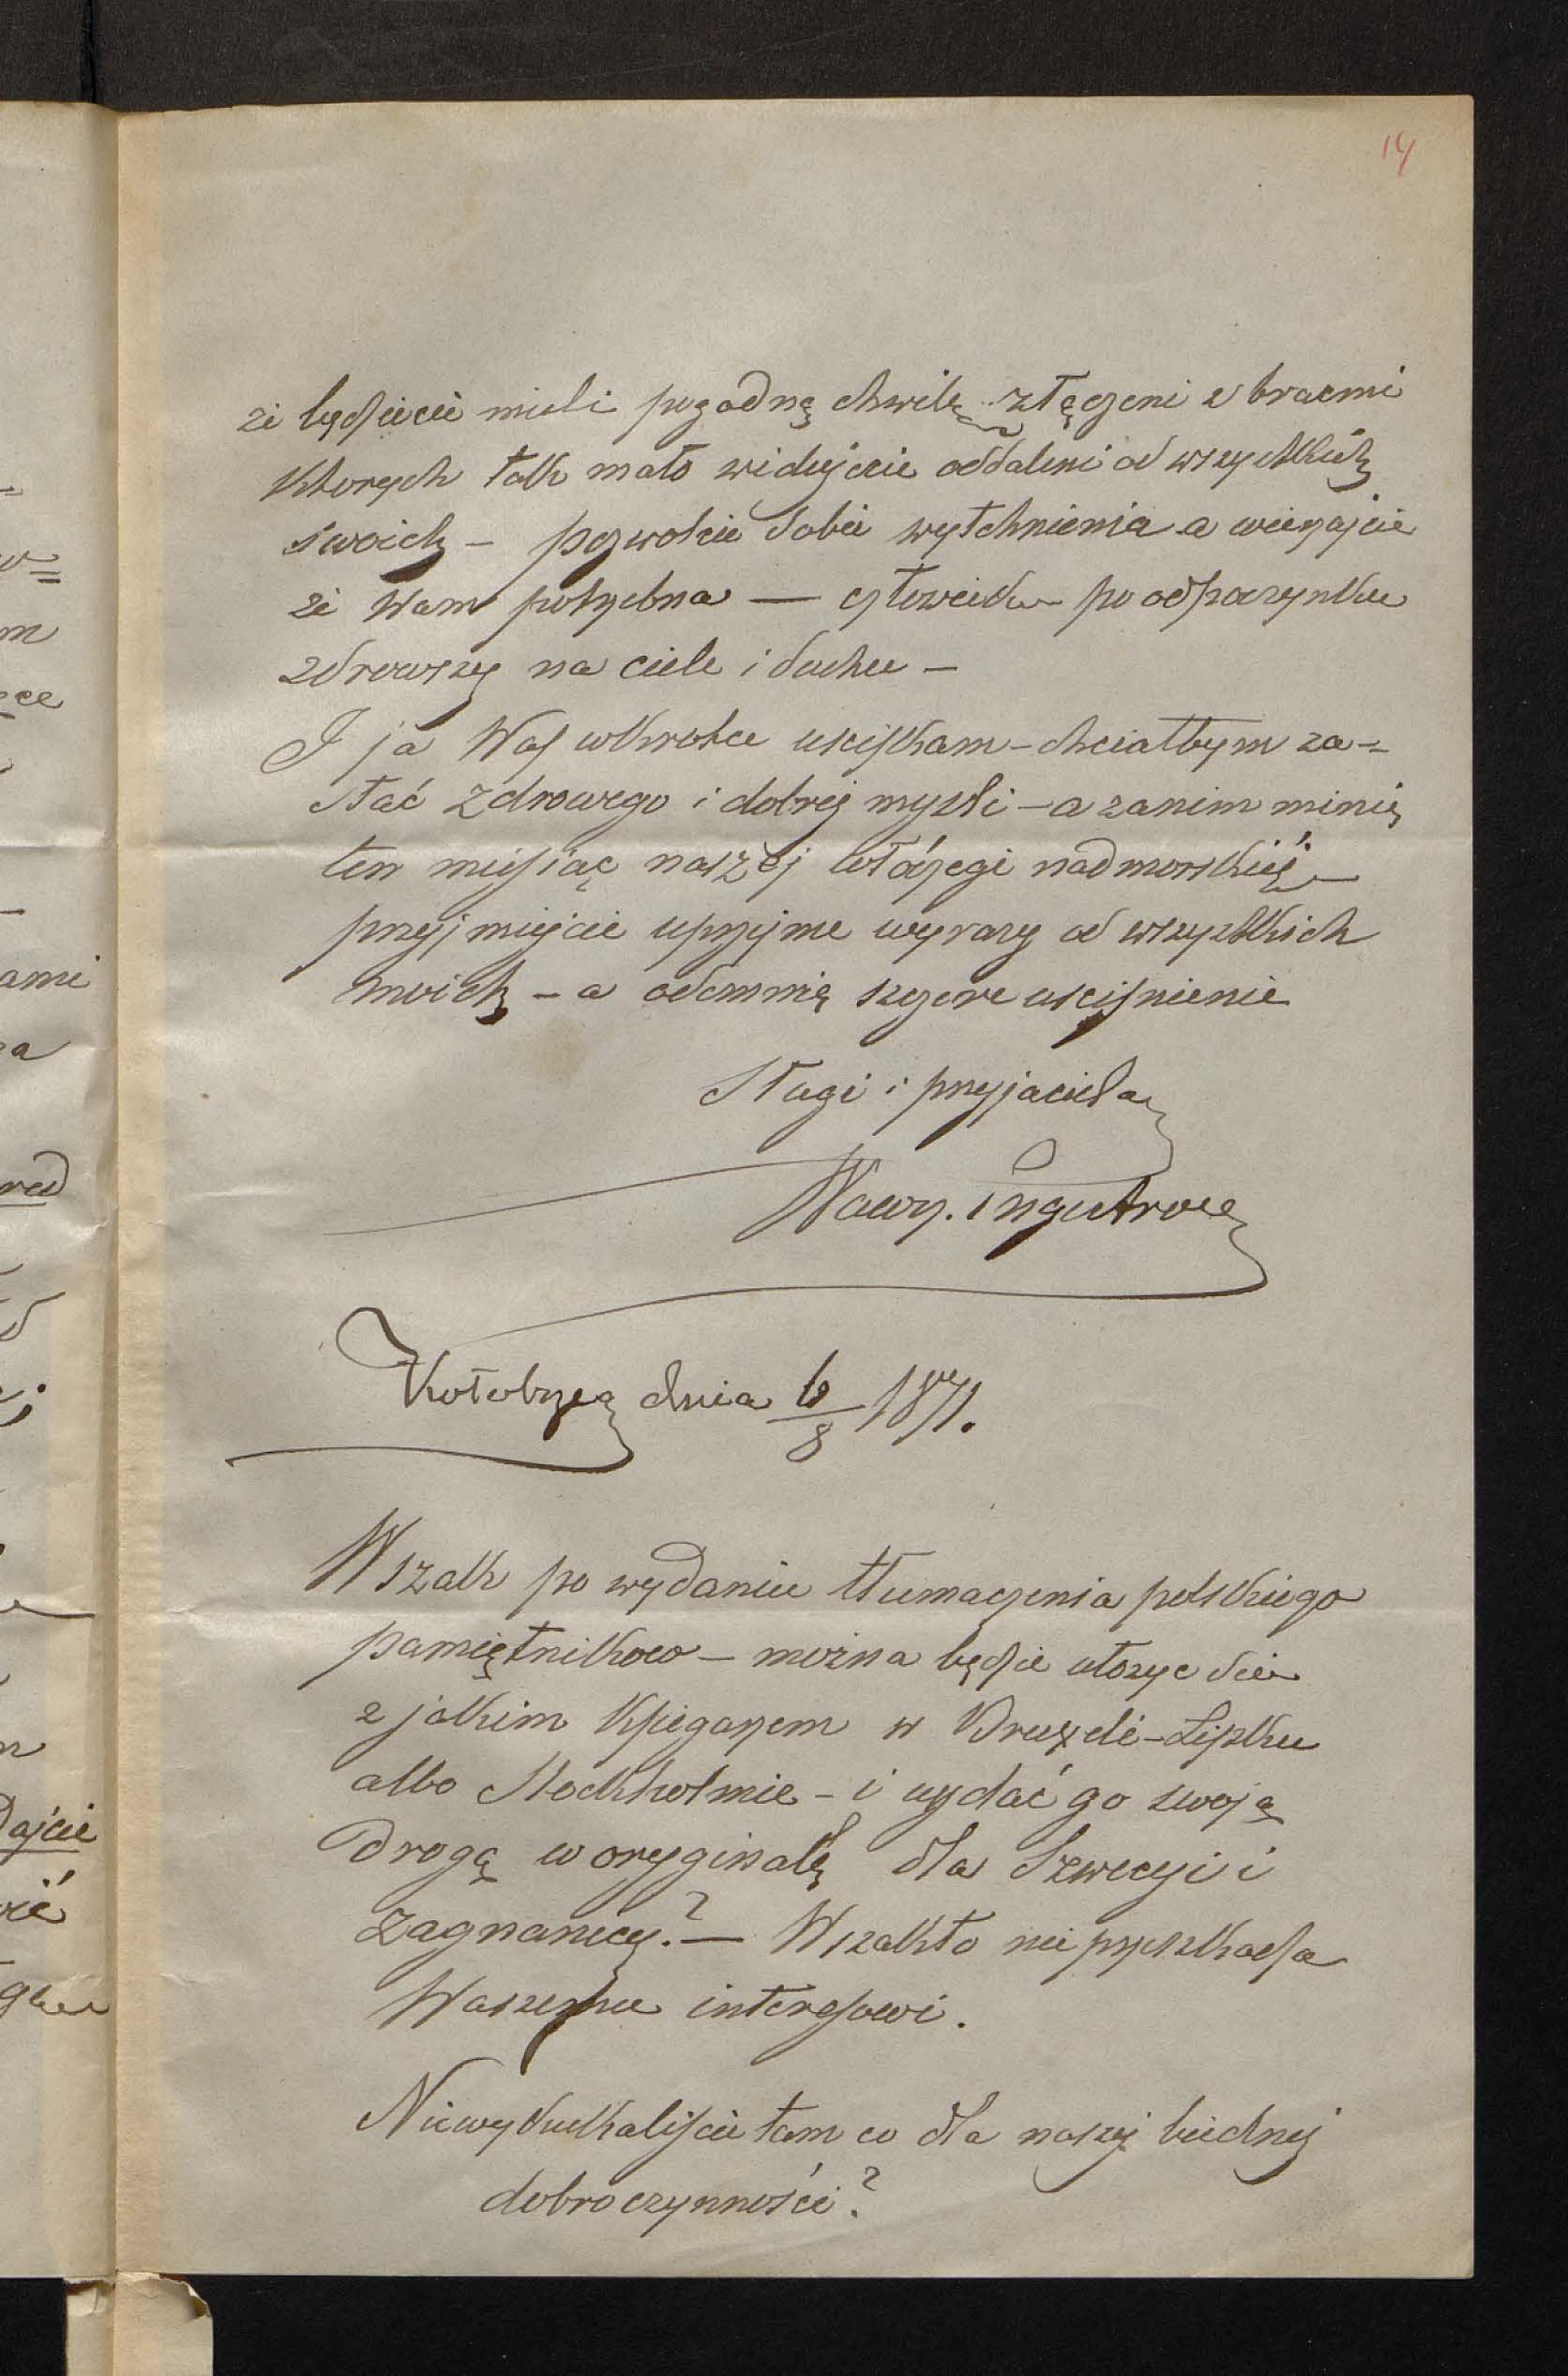 14
że będziecie mieli pogodną chwilę złączeni z braćmi
których tak mało widujecie oddaleni od wszystkich
swoich – pozwolcie sobie wytchnienia a wierzajcie
że Wam potrzebna — człowiek po odpoczynku
zdrowszy na ciele i duchu –
I ja Was wkrotce uściskam – chciałbym za=
stać zdrowego i dobrej myśli – a zanim minie
ten miesiąc naszej włóczęgi nadmorskiéj –
przyjmiejcie uprzejme wyrazy od wszystkich
moich – a odemnię szczere uściśnienie
Sługi i przyjaciela
Wawrz.
Kołobrzeg dnia 6/8 1871.
Wszak po wydaniu tłumaczenia polskiego
pamiętnikow – można będzie ułozyc sie
z jakim Księgarzem w Bruxeli – Lipsku
albo Stockholmie – i wydać go swoją
drogą w oryginalę dla Szwecyi i
zagranicy? — Wszakto nie przeszkadza
Waszemu interesowi.
Niewykukaliście tam co dla naszej biednej
dobroczynności?